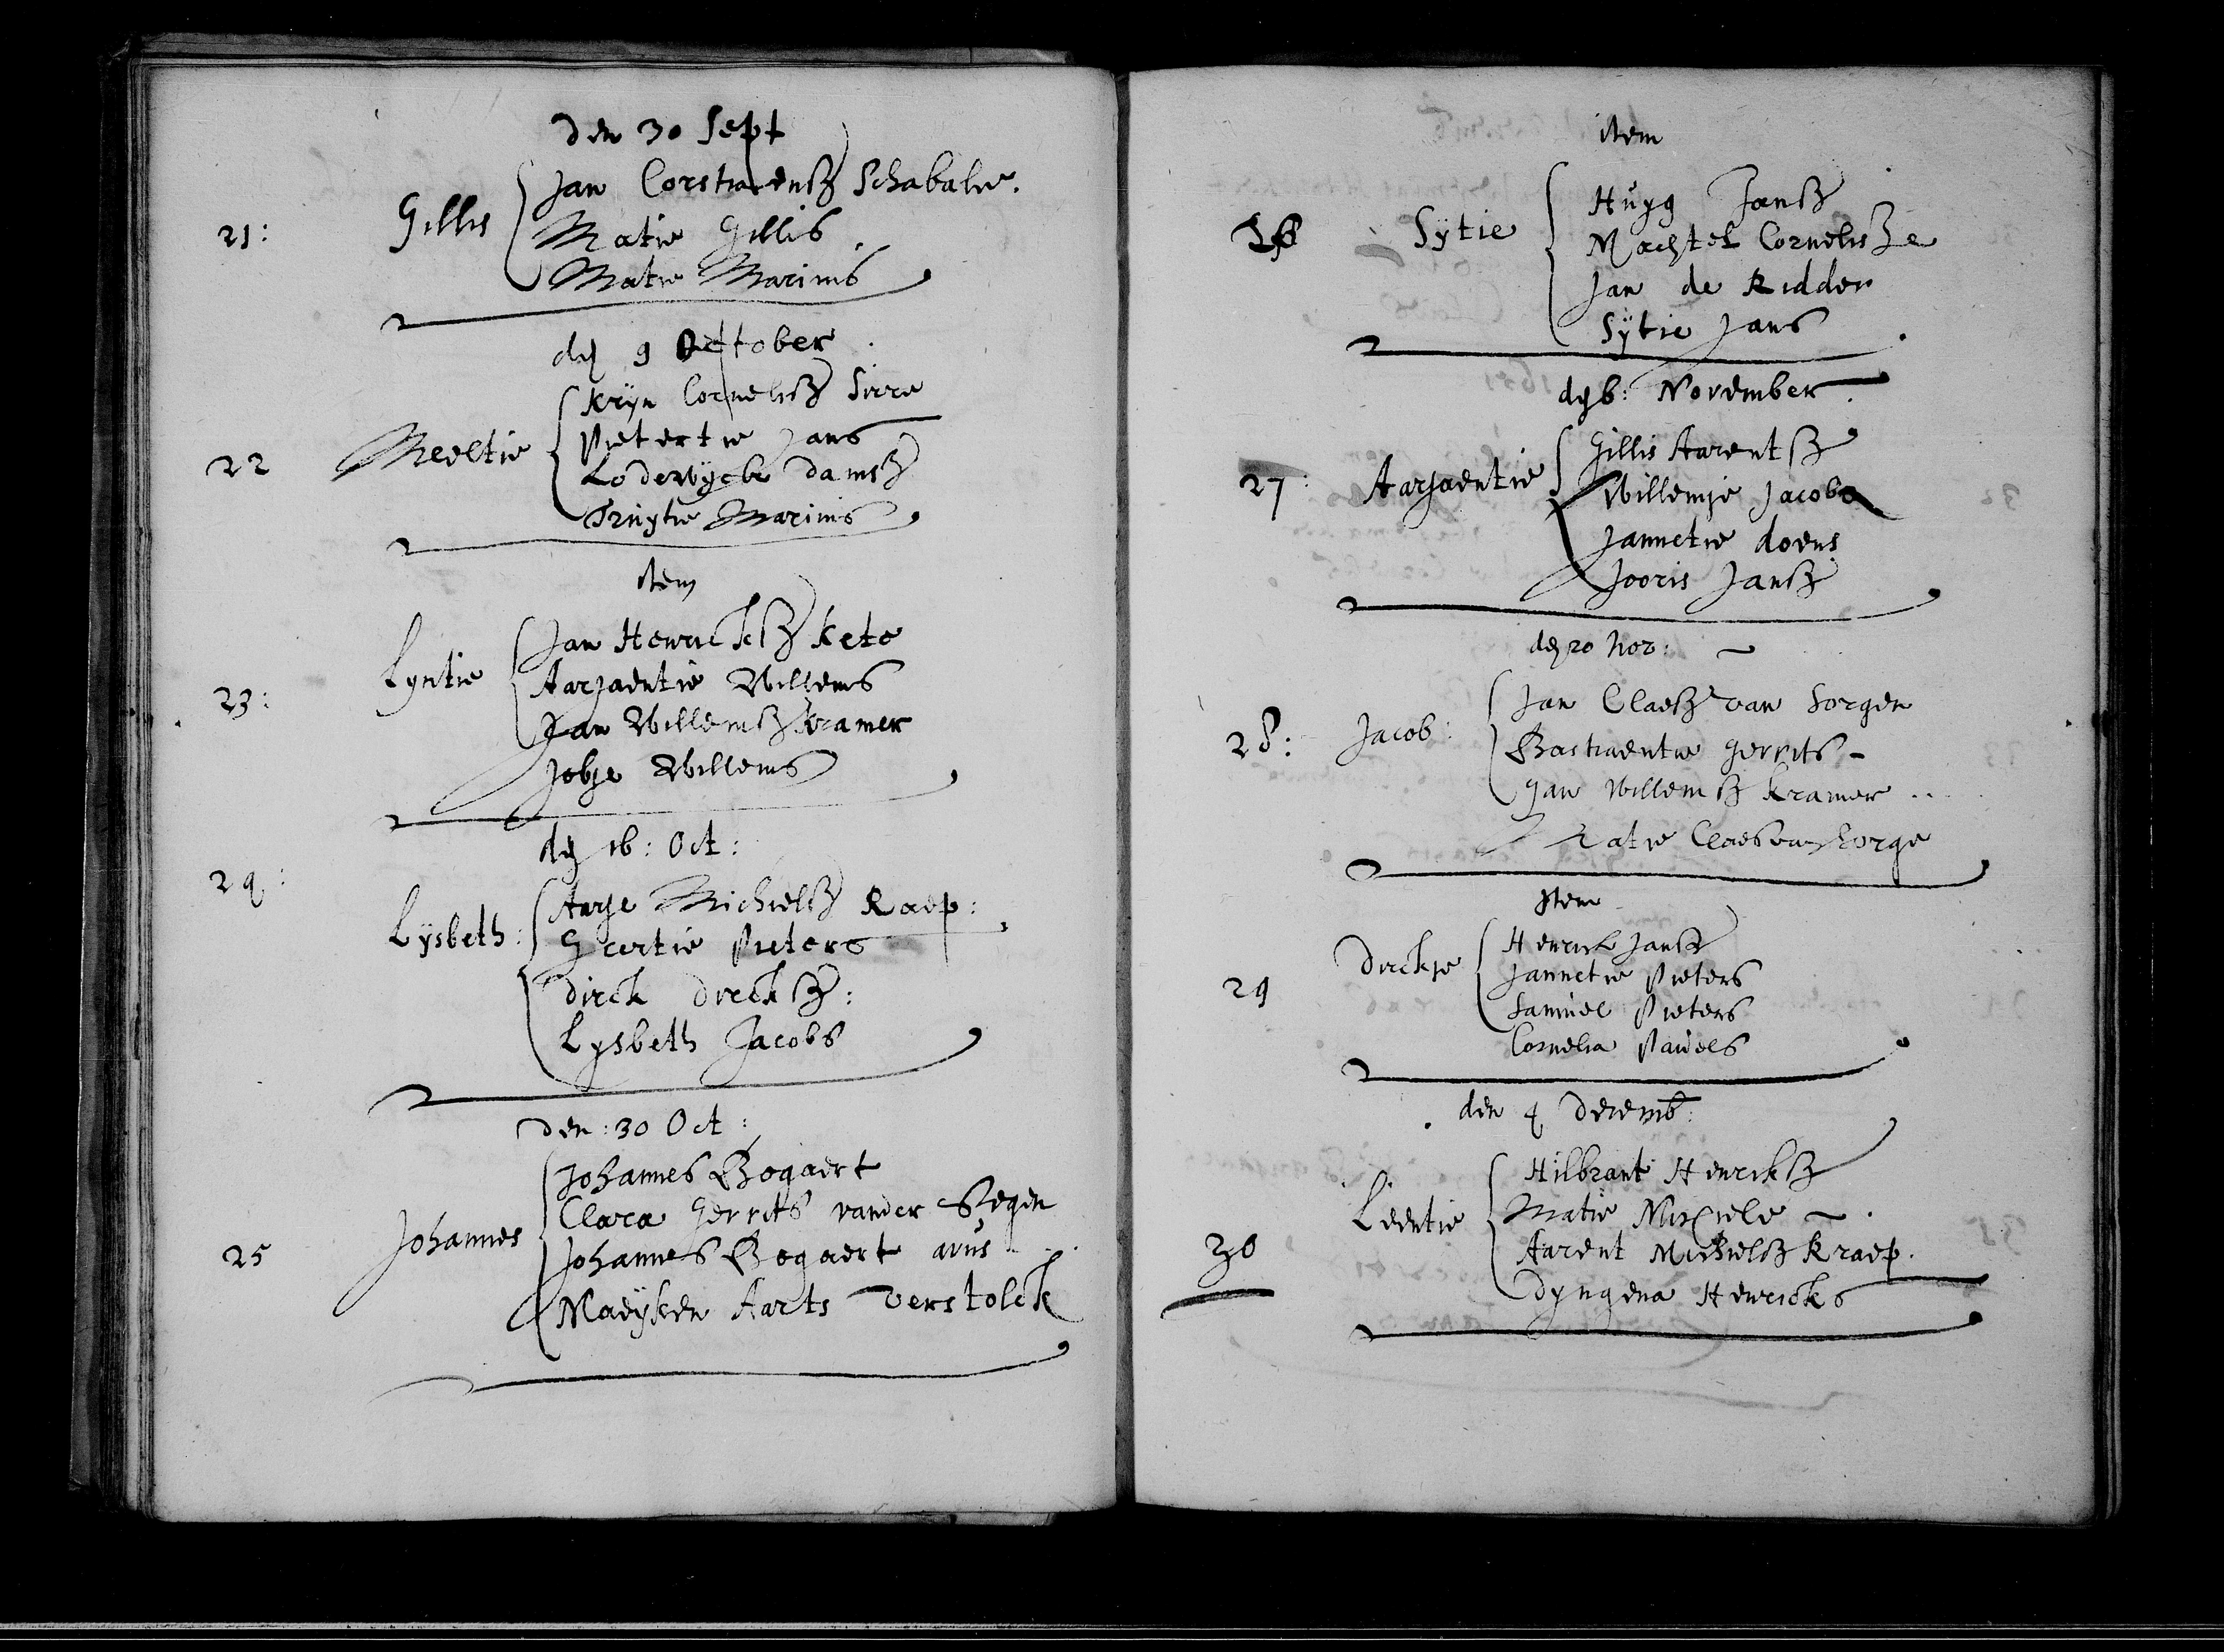 den 30 Sept
21: Gillis Jan Corstiaensz Schabalie.
Matie Gillis
Matie Marinis
den 9 October
22 Meeltie Krijn Cornelisz Sirre
Pietertie Jans
Lodewijck damsz
Trijtie Marinis
item
23: Lijntie Jan Henricksz Kete
Aarjaentie Willems
Jan Willemsz Kramer
Jobje Willems
den 16: Oct:
24: Lijsbeth: Aarje Michielsz Kaep:
Geertie Pieters
Dirck Dircksz:
Lysbeth Jacobs
den: 30 Oct:
25 Johannes Johannes Bogaert
Clara Gerrits vander
Johannes Bogaert avus
Maeijken Aarts Verstolck
item
26 Sÿtie Huijg Jansz
Machtel Cornelisze
Jan de Ridder
Sÿtie Jans
den 6: November
27: Aarjaentie Gillis Aarentsz
Willemje Jacobs
Jannetie doens
Jooris Jansz
den 20 Nov:
28: Jacob: Jan Claesz van Sorgen
Bastiaentie Gerrits
Jan Willemsz Kramer
Matie Claes van Sorge
Item
29 Dirckje Henrick Jansz
Jannetie Pieters
Samuel Pieters
Cornelia Pauwels
den 4 Decemb:
30 Leentie Hilbrant Henricksz
Matie Michiels
Aarent Michielsz Kraep.
Dyngena Henricks